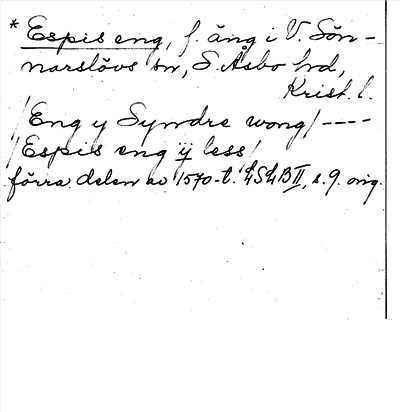 * Espis eng, f. äng i V. Sön-
narslövs sn, S. Åsbo hd,
Krist. l.
/Eng y Syndre wong/ ----
/Espis eng ÿ less/
förra delen av 1570-t. LSLB II, s. 9. orig.